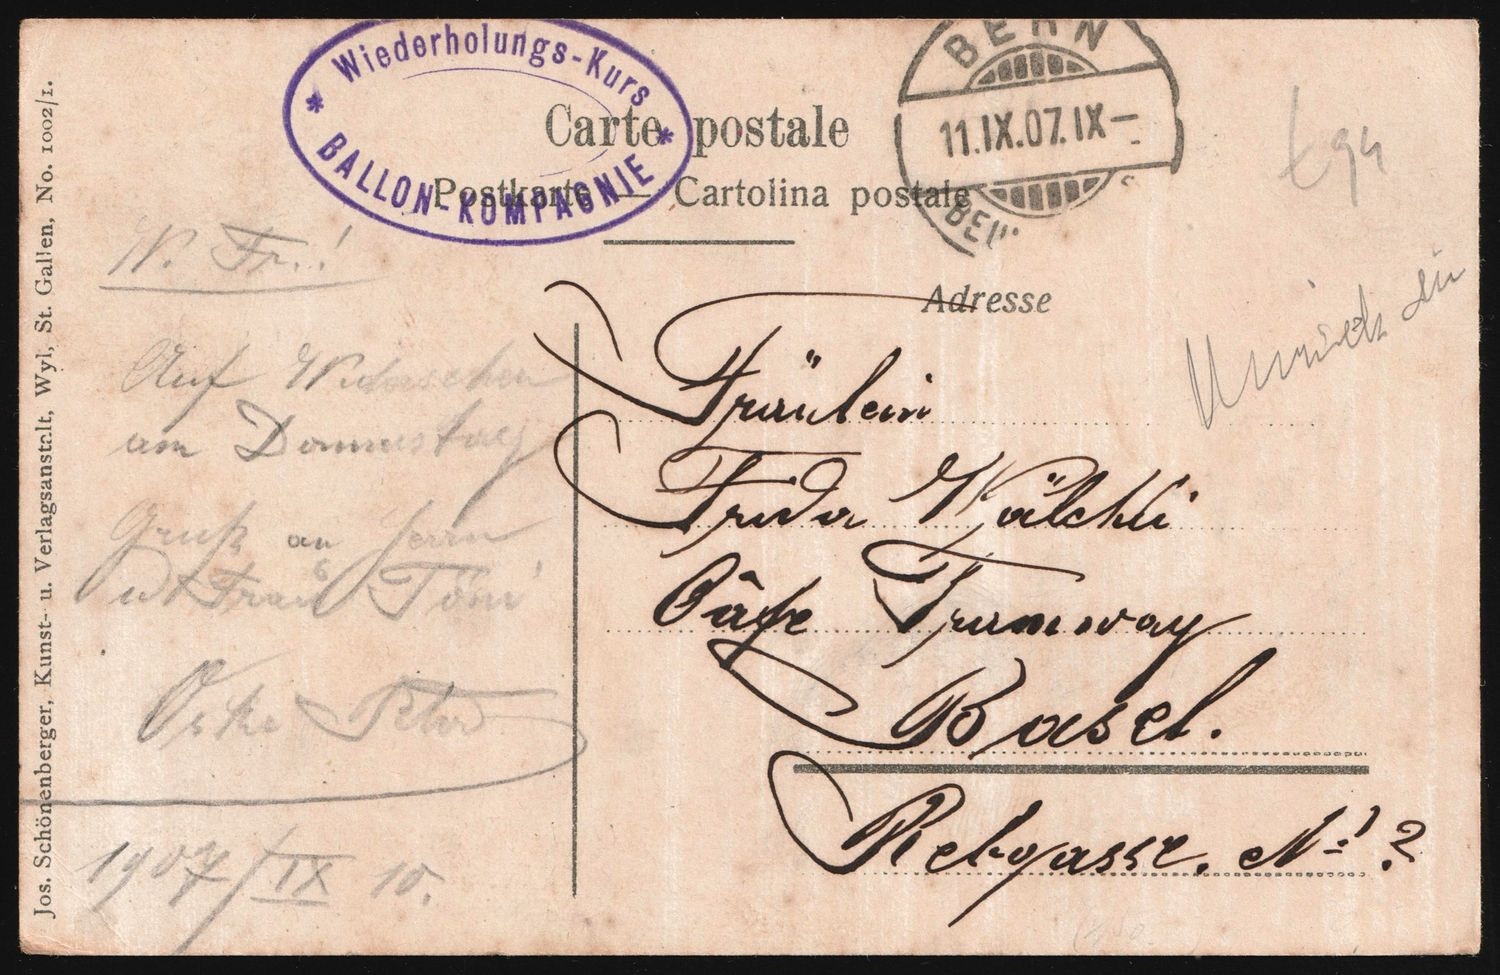 Wiederholungs-Kurs
* BALLON-KOMPAGNIE *
BERN
11.IX.07.IX-
Carte postale
Postkarte — Cartolina postale
Adresse
Fräulein
Frida Wälchli
Câfe Tramway
Basel.
Rebgasse. No ?
W. Fr.!
Auf Wiedersehen
am Donnerstag
Gruss an Herrn
u Frau
1907/IX 10.
Jos. Schönenberger, Kunst- u. Verlagsanstalt, Wyl, St. Gallen, No. 1002/1.